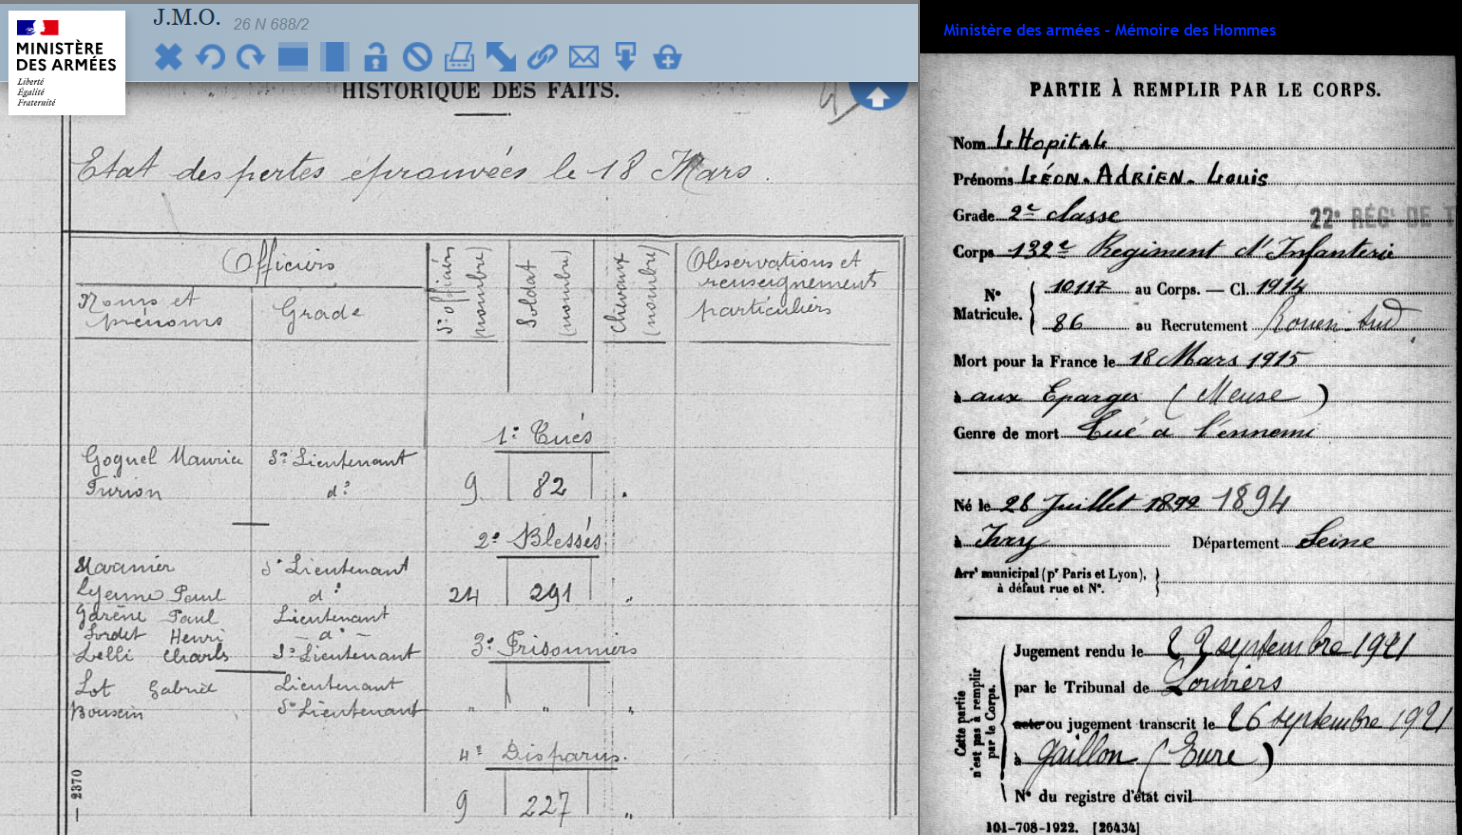 J.M.O. 26 N 688/2
MINISTÈRE
DES ARMÉES
Liberté
Égalité
Fraternité
HISTORIQUE DES FAITS.
Etat des pertes éprouvées le 18 Mars.
Officiers
Noms et
prénoms
Grade
S/officier
(nombre)
Soldat
(nombre)
Chevaux
(nombre)
Observations et
renseignements
particuliers
1º Tués
Goguel Maurice S/Lieutenant
Turion dº
9 82
2º Blessés
S/Lieutenant
Lejeune Paul dº
24 291 "
Garène Paul Lieutenant
Sordet Henri dº
Lelli Charles S/Lieutenant
3º Prisonniers
Lot Gabriel Lieutenant
Bousein S/Lieutenant
" " "
4º Disparus.
9 227 "
— 2370 —
Ministère des armées - Mémoire des Hommes
PARTIE À REMPLIR PAR LE CORPS.
Nom LeHopitaLe
Prénoms LÉON-ADRIEN-Louis
Grade 2e classe
22e RÉGt DE T
Corps 132e Regiment d'Infanterie
No Matricule.
10117 au Corps. — Cl. 1914
86 au Recrutement Rouen-Sud
Mort pour la France le 18 Mars 1915
à aux Eparges (Meuse)
Genre de mort Tué à l'ennemi
Né le 28 Juillet 1892 1894
à Ivry Département Seine
Arrt municipal (pr Paris et Lyon),
à défaut rue et No.
Cette partie
n'est pas à remplir
par le Corps.
Jugement rendu le 22 septembre 1921
par le Tribunal de Louviers
acte ou jugement transcrit le 26 septembre 1921
à Gaillon (Eure)
No du registre d'état civil
101-708-1922. [26434]